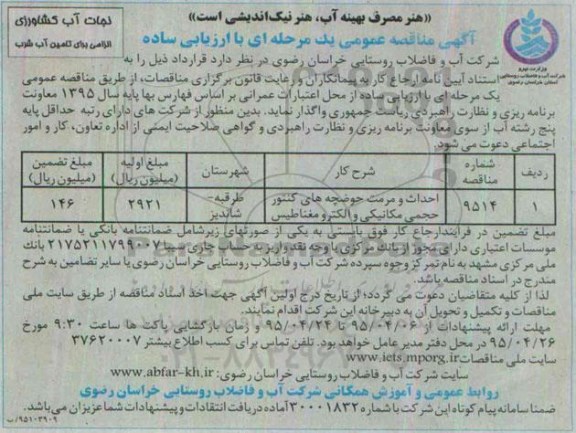 نجات آب کشاورزی
الزامی برای تامین آب شرب
«هنر مصرف بهینه آب، هنر نیک‌اندیشی است»
آگهی مناقصه عمومی یک مرحله ای با ارزیابی ساده
وزارت نیرو
شرکت آب و فاضلاب روستایی
استان خراسان رضوی
شرکت آب و فاضلاب روستایی خراسان رضوی در نظر دارد قرارداد ذیل را به
استناد آیین نامه ارجاع کار به پیمانکاران و رعایت قانون برگزاری مناقصات، از طریق مناقصه عمومی
یک مرحله ای با ارزیابی ساده از محل اعتبارات عمرانی بر اساس فهارس بها پایه سال ۱۳۹۵ معاونت
برنامه ریزی و نظارت راهبردی ریاست جمهوری واگذار نماید. بدین منظور از شرکت های دارای رتبه حداقل پایه
پنج رشته آب از سوی معاونت برنامه ریزی و نظارت راهبردی و گواهی صلاحیت ایمنی از اداره تعاون، کار و امور
اجتماعی دعوت می شود.
ردیف شماره مناقصه شرح کار شهرستان مبلغ اولیه (میلیون ریال) مبلغ تضمین (میلیون ریال)
۱ ۹۵۱۴ احداث و مرمت حوضچه های کنتور حجمی مکانیکی و الکترومغناطیس طرقبه- شاندیز ۲۹۲۱ ۱۴۶
مبلغ تضمین در فرآیند ارجاع کار فوق بایستی به یکی از صورتهای زیر شامل ضمانتنامه بانکی یا ضمانتنامه
موسسات اعتباری دارای مجوز از بانک مرکزی یا وجه نقد واریز به حساب جاری سیبا ۲۱۷۵۲۱۱۷۹۹۰۰۷ بانک
ملی مرکزی مشهد به نام تمرکز وجوه سپرده شرکت آب و فاضلاب روستایی خراسان رضوی یا سایر تضامین به شرح
مندرج در اسناد مناقصه باشد.
لذا از کلیه متقاضیان دعوت می گردد؛ از تاریخ درج اولین آگهی جهت اخذ اسناد مناقصه از طریق سایت ملی
مناقصات و تکمیل و تحویل آن به دبیرخانه این شرکت اقدام نمایند.
مهلت ارائه پیشنهادات از ۹۵/۰۴/۰۶ تا ۹۵/۰۴/۲۴ و زمان بازگشایی پاکت ها ساعت ۹:۳۰ مورخ
۹۵/۰۴/۲۶ در محل دفتر مدیر عامل خواهد بود. تلفن تماس برای کسب اطلاع بیشتر ۳۷۶۲۰۰۰۷
سایت ملی مناقصات www.iets.mporg.ir
سایت شرکت آب و فاضلاب روستایی خراسان رضوی: www.abfar-kh.ir
روابط عمومی و آموزش همگانی شرکت آب و فاضلاب روستایی خراسان رضوی
ضمنا سامانه پیام کوتاه این شرکت با شماره ۳۰۰۰۱۸۳۲ آماده دریافت انتقادات و پیشنهادات شما عزیزان می باشد.
۹۵۱۰۳۹۰۹/ب